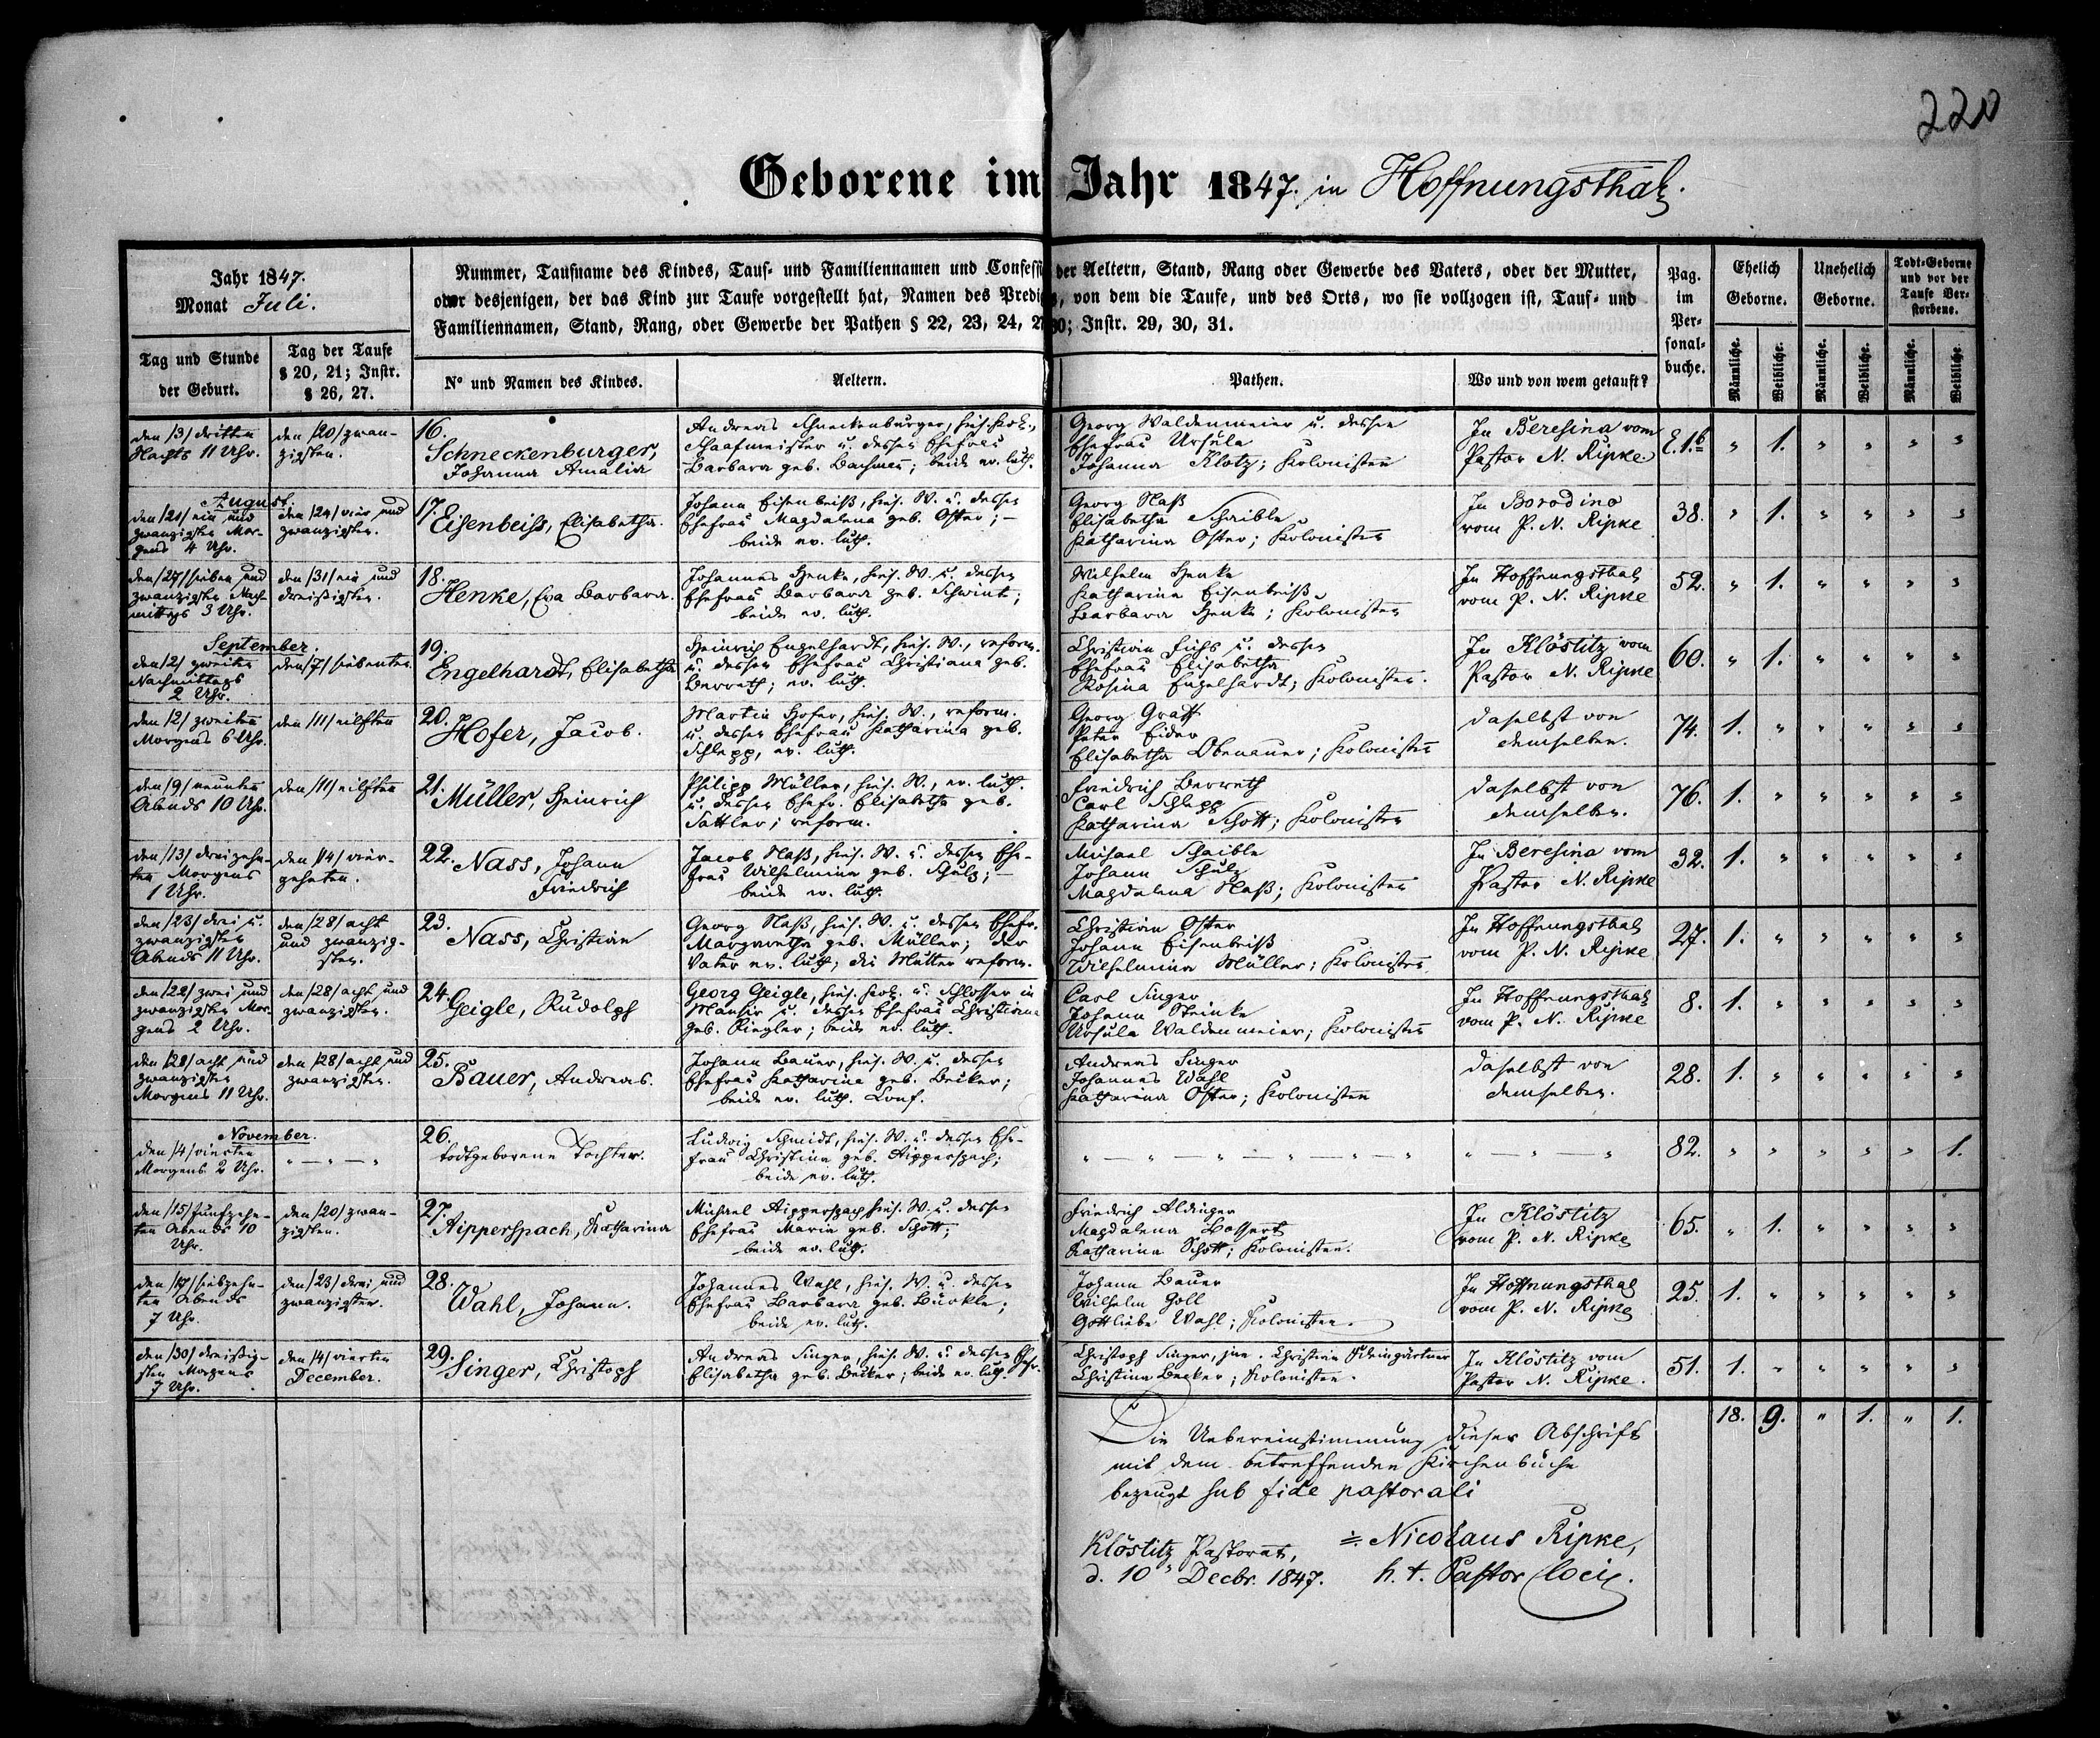 220
Geborene im Jahr 1847. in Hoffnungsthal.
Jahr 1847.
Monat Juli.
Nummer, Taufname des Kindes, Tauf- und Familiennamen und Confessi der Aeltern, Stand, Rang oder Gewerbe des Vaters, oder der Mutter,
oder desjenigen, der das Kind zur Taufe vorgestellt hat, Namen des Predig, von dem die Taufe, und des Orts, wo sie vollzogen ist, Tauf- und
Familiennamen, Stand, Rang, oder Gewerbe der Pathen § 22, 23, 24, 2 30; Instr. 29, 30, 31.
Tag und Stunde
der Geburt.
Tag der Taufe
§ 20, 21; Instr.
§ 26, 27.
No und Namen des Kindes.
Aeltern.
Pathen.
Wo und von wem getauft?
Pag.
im
Per-
sonal-
buche.
Ehelich
Geborne.
Unehelich
Geborne.
Todt-Geborne
und vor der
Taufe Ver-
storbene.
Männliche.
Weibliche.
Männliche.
Weibliche.
Männliche.
Weibliche.
den /3/ dritten
Nachts 11 Uhr.
den /20/ zwan-
zigsten.
16.
Schneckenburger,
Johanna Amalia
Andreas Schneckenburger, hies. Kol.,
Schaafmeister u. dessen Ehefrau
Barbara geb. Bachmann; beide ev. luth.
Georg Waldenmeier u. dessen
Ehefrau Ursula
Johanna Klotz; Kolonisten
In Beresina vom
Pastor N. Ripke
E.1.b " 1. " " " "
August.
den /21/ ein und
zwanzigsten Mor-
gens 4 Uhr.
den /24/ vier und
zwanzigsten.
17.
Eisenbeiss, Elisabetha.
Johann Eisenbeiß, hies. W. u. dessen
Ehefrau Magdalena geb. Oster; –
beide ev. luth.
Georg Naß
Elisabetha Schaible
Katharina Oster; Kolonisten
In Borodino
vom P. N. Ripke
38. " 1. " " " "
den /27/ sieben und
zwanzigsten Nach-
mittags 3 Uhr.
den /31/ ein und
dreißigsten.
18.
Henke, Eva Barbara.
Johannes Henke, hies. W. u. dessen
Ehefrau Barbara geb. Schwint;
beide ev. luth.
Wilhelm Henke
Katharina Eisenbeiß
Barbara Henke; Kolonisten
In Hoffnungsthal
vom P. N. Ripke
52. " 1. " " " "
September.
den /2/ zweiten
Nachmittags
2 Uhr.
den /7/ siebenten
19.
Engelhardt, Elisabetha
Heinrich Engelhardt, hies. W., reform.
u. dessen Ehefrau Christiana geb.
Berreth; ev. luth.
Christian Fuchs u. dessen
Ehefrau Elisabetha
Rosina Engelhardt; Kolonisten.
In Klöstitz vom
Pastor N. Ripke
60. " 1. " " " "
den /2/ zweiten
Morgens 6 Uhr.
den /11/ eilften
20.
Hofer, Jacob.
Martin Hofer, hies. W., reform.
u. dessen Ehefrau Katharina geb.
Schlepp, ev. luth.
Georg Graff
Peter Eider
Elisabetha Obenauer; Kolonisten
daselbst von
demselben.
74. 1. " " " " "
den /9/ neunten
Abends 10 Uhr.
den /11/ eilften
21.
Müller, Heinrich
Philipp Müller, hies. W., ev. luth.
u. dessen Ehefr. Elisabetha geb.
Sattler; reform.
Friedrich Berreth
Carl Schlepp
Katharina Schott; Kolonisten
daselbst von
demselben.
76. 1. " " " " "
den /13/ dreizehn-
ten Morgens
1 Uhr.
den /14/ vier-
zehnten.
22. Nass, Johann
Friedrich
Jacob Naß, hies. W. u. dessen Ehe-
frau Wilhelmina geb. Schulz; –
beide ev. luth.
Michael Schaible
Johann Schulz
Magdalena Naß; Kolonisten
In Beresina vom
Pastor N. Ripke
32. 1. " " " " "
den /23/ drei u.
zwanzigsten
Abends 11 Uhr.
den /28/ acht
und zwanzig-
sten.
23.
Nass, Christian
Georg Naß, hies. W. u. dessen Ehefr.
Margaretha geb. Müller; der
Vater ev. luth; die Mutter reform.
Christian Oster
Johann Eisenbeiß
Wilhelmina Müller; Kolonisten
In Hoffnungsthal
vom P. N. Ripke
27. 1. " " " " "
den /22/ zwei und
zwanzigsten Mor-
gens 2 Uhr.
den /28/ acht und
zwanzigsten.
24.
Geigle, Rudolph
Georg Geigle, hies. Kol. u. Schlosser in
Mansir u. dessen Ehefrau Christina
geb. Riegler; beide ev. luth.
Carl Singer
Johann Steinke
Ursula Waldenmeier; Kolonisten
In Hoffnungsthal
vom P. N. Ripke
8. 1. " " " " "
den /28/ acht und
zwanzigsten
Morgens 11 Uhr.
den /28/ acht und
zwanzigsten.
25.
Bauer, Andreas.
Johann Bauer, hies. W. u. dessen
Ehefrau Katharina geb. Becker;
beide ev. luth. Conf.
Andreas Singer
Johannes Wahl
Katharina Oster; Kolonisten
daselbst von
demselben.
28. 1. " " " " "
November.
den /4/ vierten
Morgens 2 Uhr.
" – " – "
26.
todtgeborene Tochter.
Ludwig Schmidt, hies. W. u. dessen Ehe-
frau Christina geb. Aipperspach;
beide ev. luth.
" – " – " – " – " – "
" – " – "
82. " " " " " 1.
den /15/ fünfzehn-
ten Abends 10
Uhr.
den /20/ zwan-
zigsten.
27.
Aipperspach, Katharina
Michael Aipperspach hies. W. u. dessen
Ehefrau Maria geb. Schott;
beide ev. luth.
Friedrich Aldinger
Magdalena Bossert
Katharina Schott; Kolonisten.
In Klöstitz
vom P. N. Ripke
65. " 1. " " " "
den /17/ siebzehn-
ten Abends
7 Uhr.
den /23/ drei und
zwanzigsten.
28.
Wahl, Johann.
Johannes Wahl, hies. W. u. dessen
Ehefrau Barbara geb. Bürkle;
beide ev. luth.
Johann Bauer
Wilhelm Goll
Gottliebe Wahl; Kolonisten.
In Hoffnungsthal
vom P. N. Ripke
25. 1. " " " " "
den /30/ dreißig-
sten Morgens
7 Uhr.
den /4/ vierten
December.
29.
Singer, Christoph
Andreas Singer, hies. W. u. dessen Ehefr.
Elisabetha geb. Becker; beide ev. luth.
Christoph Singer, jun. Christian Schöngärtner
Christina Becker; Kolonisten.
In Klöstitz vom
Pastor N. Ripke.
51. 1. " " " " "
18. 9. " 1. " 1.
Die Uebereinstimmung dieser Abschrift
mit dem betreffenden Kirchenbuche
bezeugt sub fide pastorali
Klöstitz Pastorat,
d. 10 Decbr. 1847.
Nicolaus Ripke,
h. t. Pastor loci.